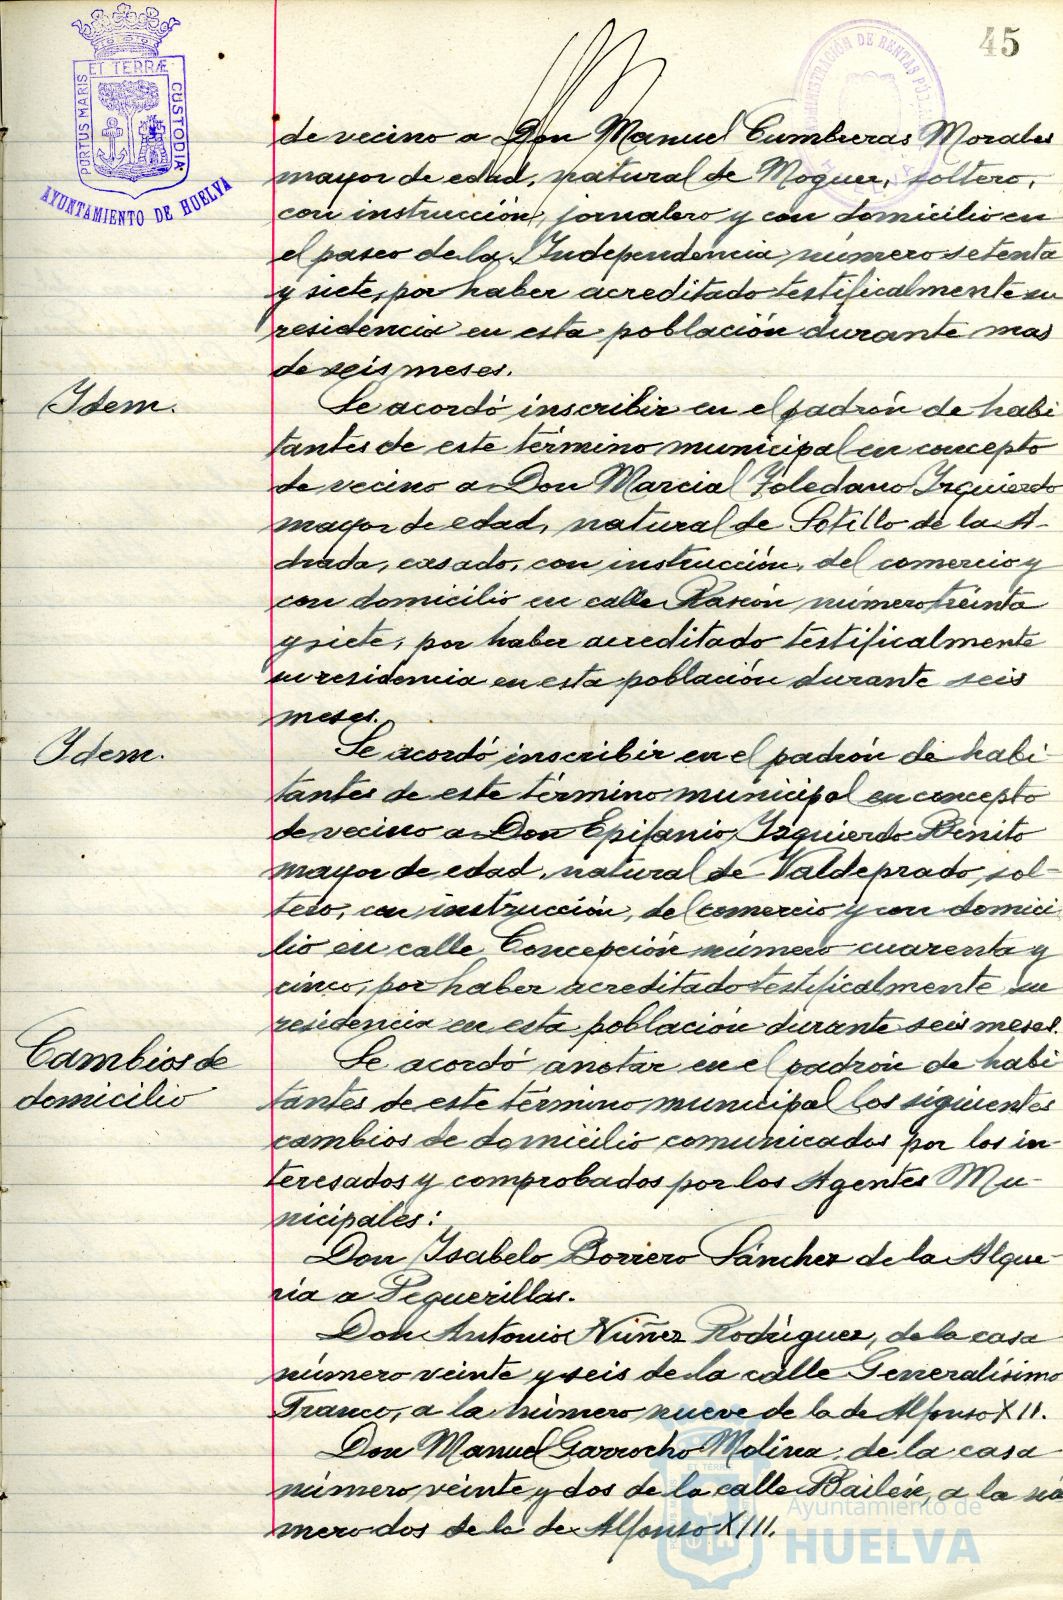 45
PORTUS MARIS ET TERRÆ CUSTODIA
AYUNTAMIENTO DE HUELVA
de vecino a Don Manuel Cumbreras Morales
mayor de edad, natural de Moguer, soltero,
con instrucción, jornalero y con domicilio en
el paseo de la Independencia número setenta
y siete, por haber acreditado testificalmente su
residencia en esta población durante mas
de seis meses.
Idem.
Se acordó inscribir en el padrón de habi
tantes de este término municipal en concepto
de vecino a Don Marcial Toledano Izquierdo
mayor de edad, natural de Sotillo de la A-
drada, casado, con instrucción, del comercio y
con domicilio en calle Rascón número treinta
y siete, por haber acreditado testificalmente
su residencia en esta población durante seis
meses.
Idem.
Se acordó inscribir en el padrón de habi-
tantes de este término municipal en concepto
de vecino a Don Epifanio Izquierdo Benito
mayor de edad, natural de Valdeprado, sol-
tero, con instrucción, del comercio y con domici
lio en calle Concepción número cuarenta y
cinco, por haber acreditado testificalmente su
residencia en esta población durante seis meses.
Cambios de
domicilio
Se acordó anotar en el padrón de habi
tantes de este término municipal los siguientes
cambios de domicilio comunicados por los in-
teresados y comprobados por los Agentes Mu-
nicipales:
Don Isabelo Borrero Sánchez de la Alque-
ria a Peguerillas.
Don Antonio Núñez Rodríguez, de la casa
número veinte y seis de la calle Generalísimo
Franco, a la número nueve de la de Alfonso XII.
Don Manuel Garrocho Molina, de la casa
número veinte y dos de la calle Bailén, a la nú
mero dos de la de Alfonso XIII.
Ayuntamiento de
HUELVA